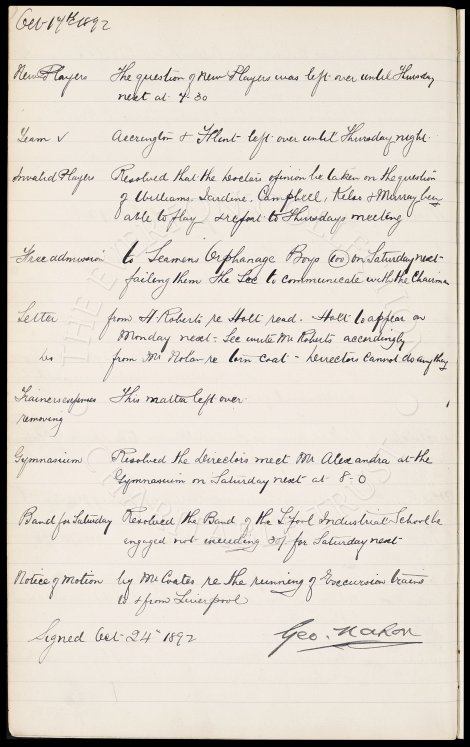 Oct 17th 1892
New Players The question of New Players was left over until Thursday
next at 4-30
Team v Accrington & Flint left over until Thursday night.
Invalid Players Resolved that the Doctors opinion be taken on the question
of Williams, Jardine, Campbell, Kelso & Murray being
able to play & report to Thursdays meeting
Free admission to Seamens Orphanage Boys (100) on Saturday next -
failing them The Sec to communicate with the Chairman
Letter from H. Roberts re Holt read. - Holt to appear on
Monday next - Sec write Mr Roberts accordingly
Do from Mr Nolan re torn coat - Directors cannot do anything
Trainers expenses This matter left over
removing
Gymnasium Resolved the Directors meet Mr Alexandra at the
Gymnasium on Saturday next at 8-0
Band for Saturday Resolved the Band of the L'pool Industrial School be
engaged not exceeding 30/- for Saturday next
Notice of Motion by Mr Coates re the running of Excursion trains
to & from Liverpool
Signed Oct 24th 1892 Geo. Mahon